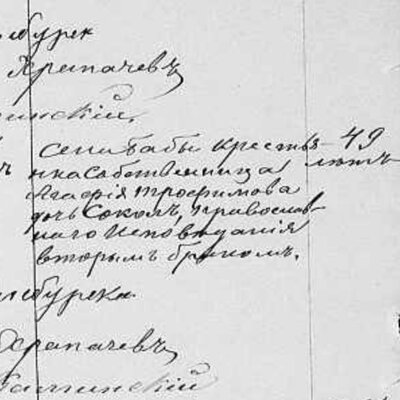 бурек
Храпачевъ
инский.
Села Бабы крестья- 49
нка собственница лѣтъ
Агафія Трофимова
дочь Сокол, православ-
наго Исповѣданія
вторымъ бракомъ.
бурека
Храпачевъ